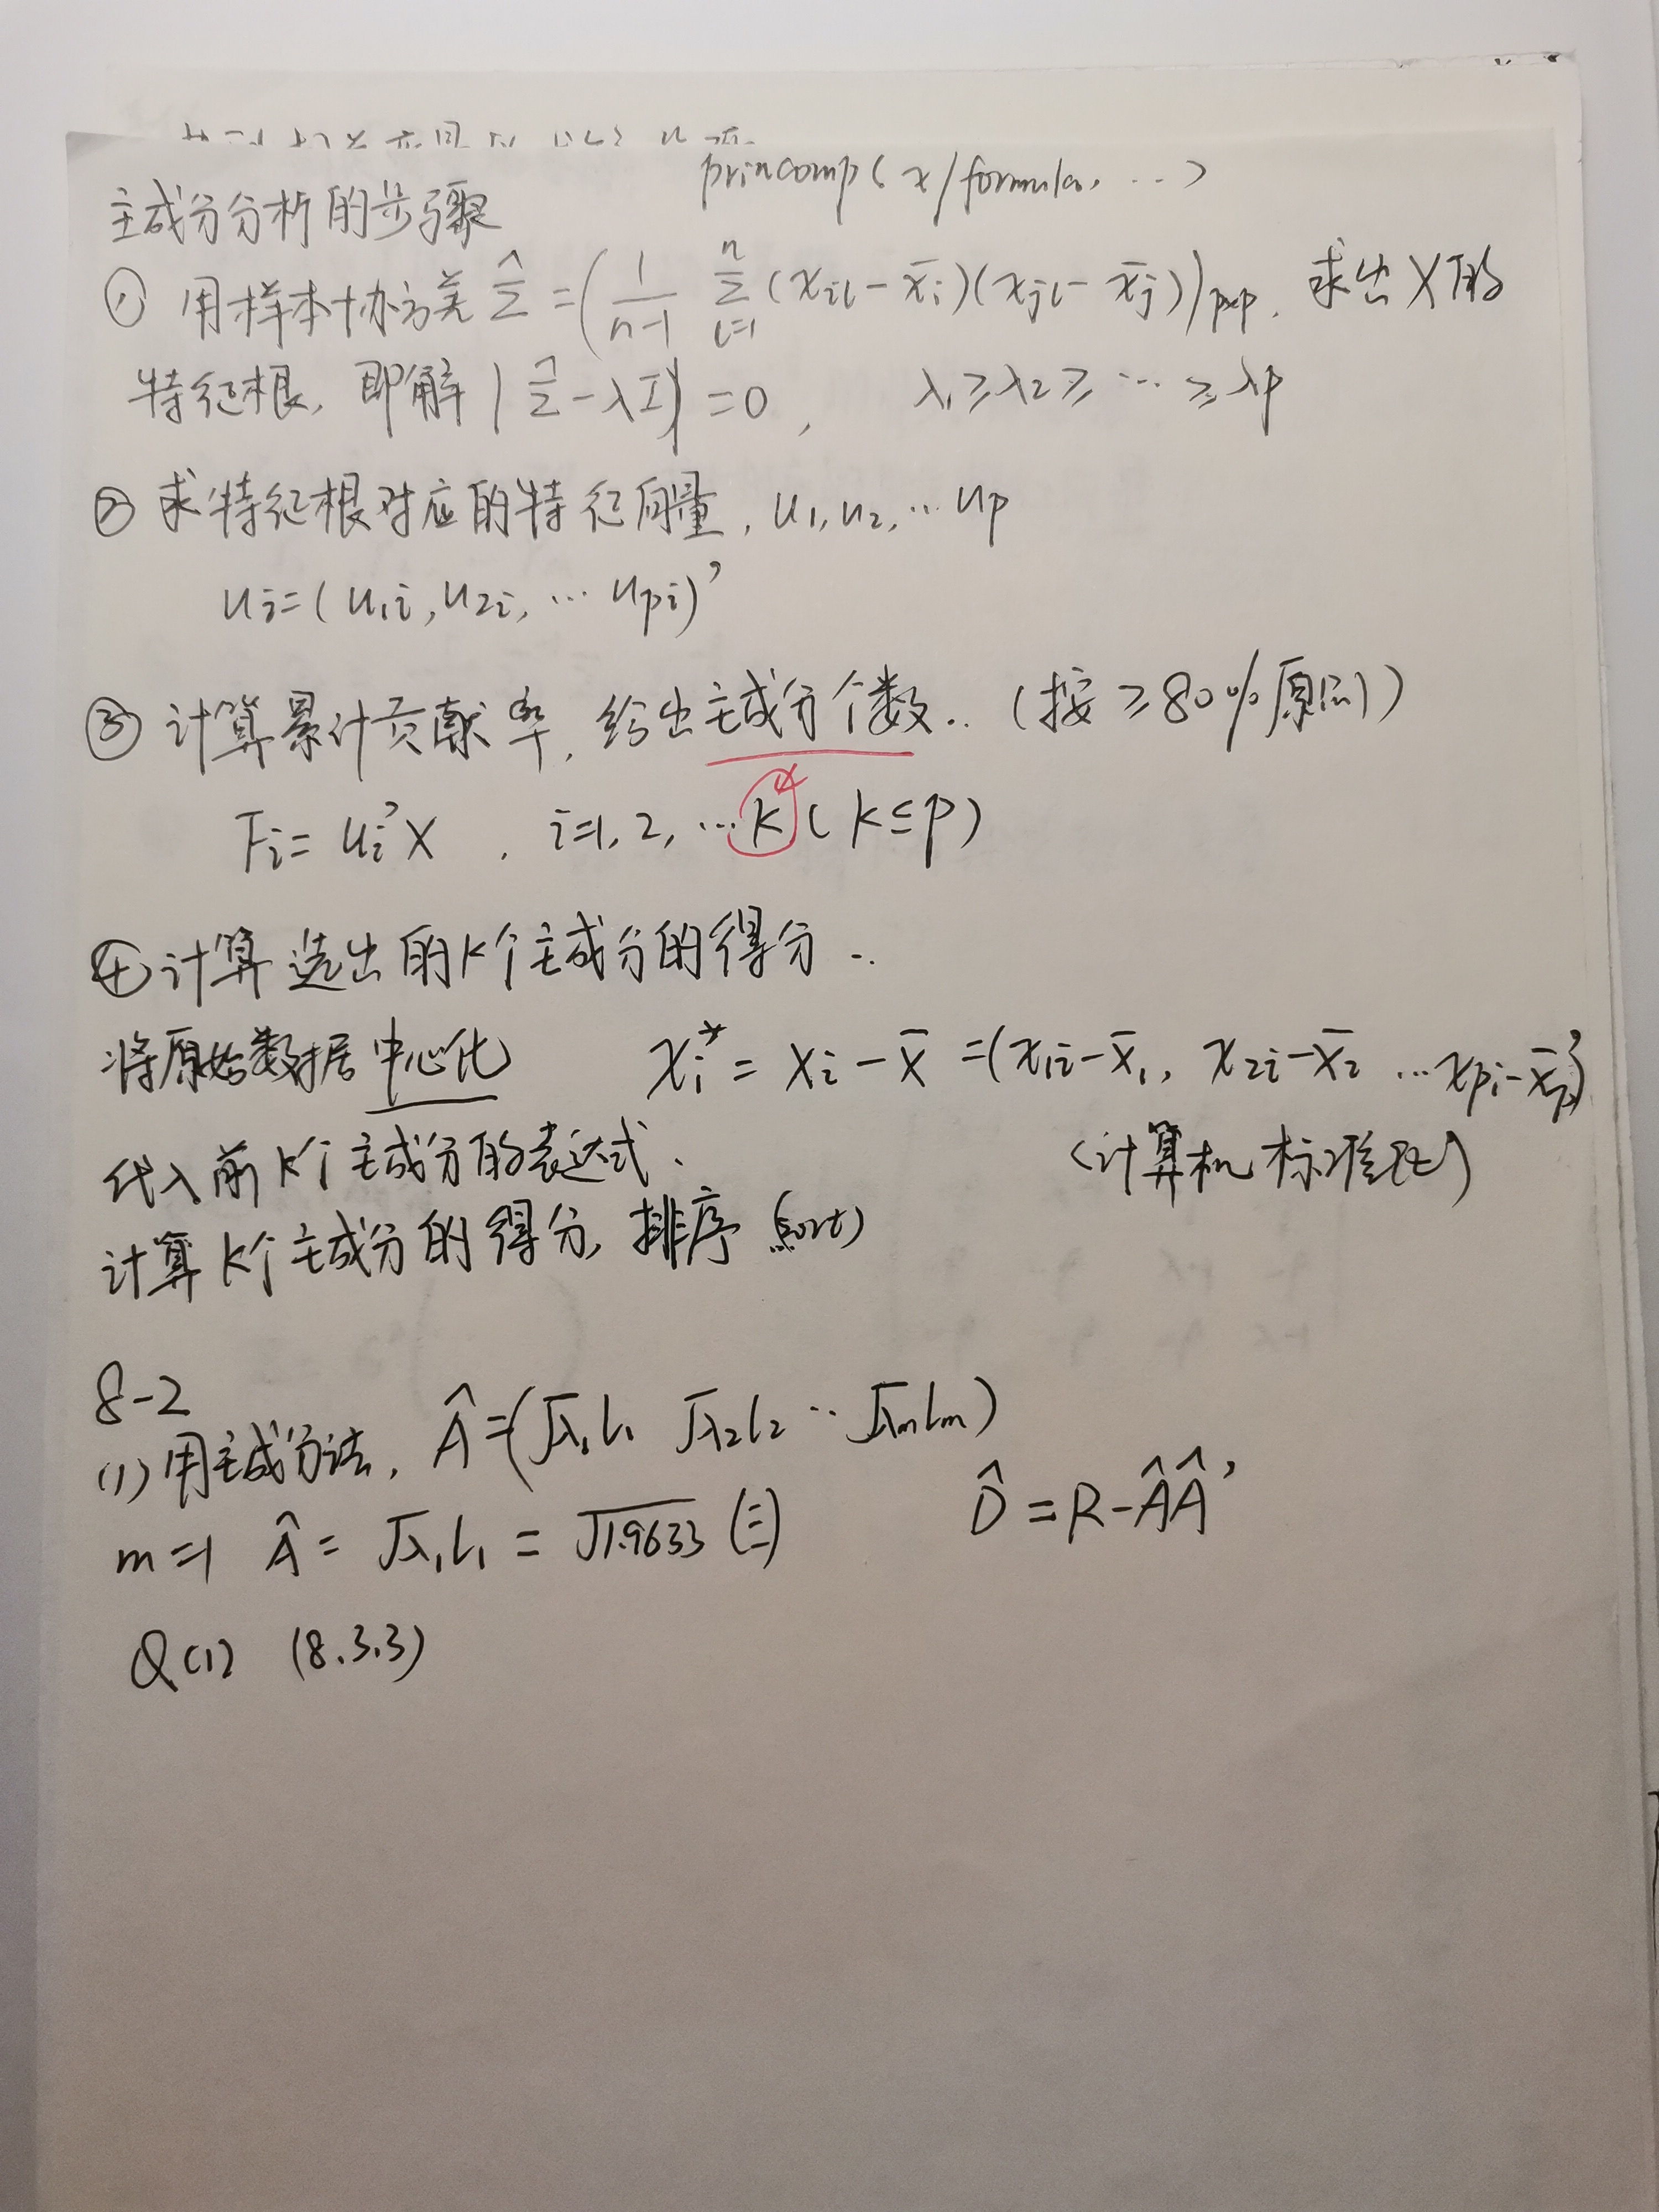 princomp(x/formula, …)
主成分分析的步骤
① 用样本协方差 Σ̂ = (1/(n-1) Σ_{l=1}^{n} (x_{il} - x̄_i)(x_{jl} - x̄_j))_{p×p}, 求出X的
特征根, 即解 |Σ̂ - λI| = 0, λ₁ ≥ λ₂ ≥ … ≥ λp
② 求特征根对应的特征向量, u₁, u₂, … up
u_i = (u_{1i}, u_{2i}, … u_{pi})'
③ 计算累计贡献率, 给出主成分个数.. (按 ≥80% 原则)
F_i = u_i'X , i=1, 2, … k (k ≤ p)
④ 计算选出的k个主成分的得分..
将原始数据中心化 x_i* = x_i - x̄ = (x_{1i} - x̄₁, x_{2i} - x̄₂ … x_{pi} - x̄_p)'
代入前k个主成分的表达式. (计算机标准化)
计算k个主成分的得分, 排序 (sort)
8-2
(1) 用主成分法, Â = (√λ₁l₁ √λ₂l₂ … √λₘlₘ)
m=1 Â = √λ₁l₁ = √1.9633 (⋮) D̂ = R - ÂÂ'
Q(1) (8.3.3)